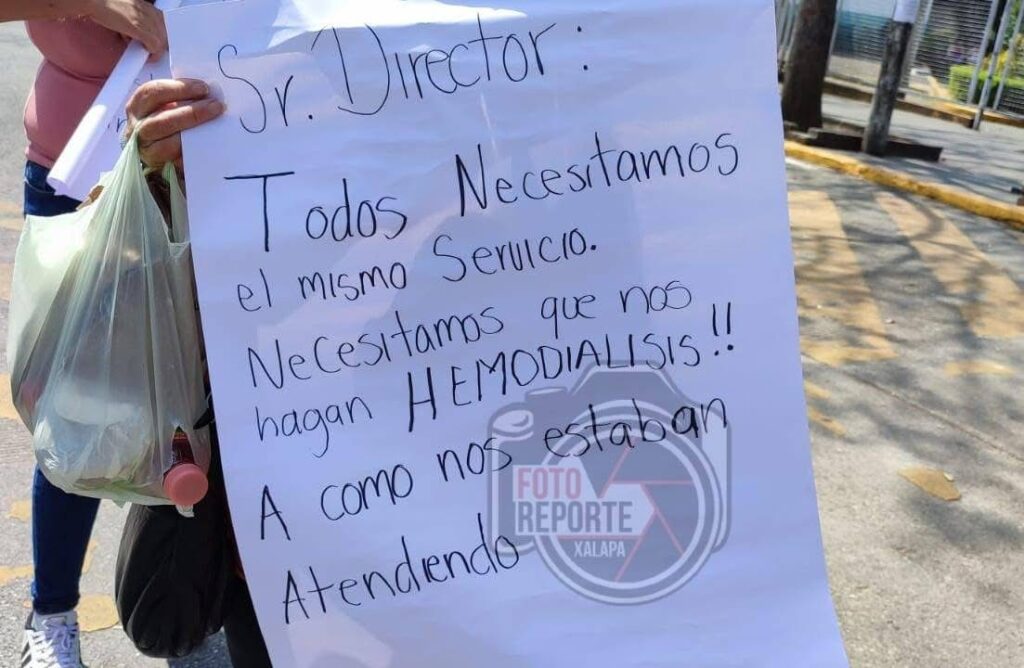 Sr. Director:
Todos Necesitamos
el mismo Servicio.
Necesitamos que nos
hagan HEMODIALISIS!!
A como nos estaban
Atendiendo
FOTO
REPORTE
XALAPA